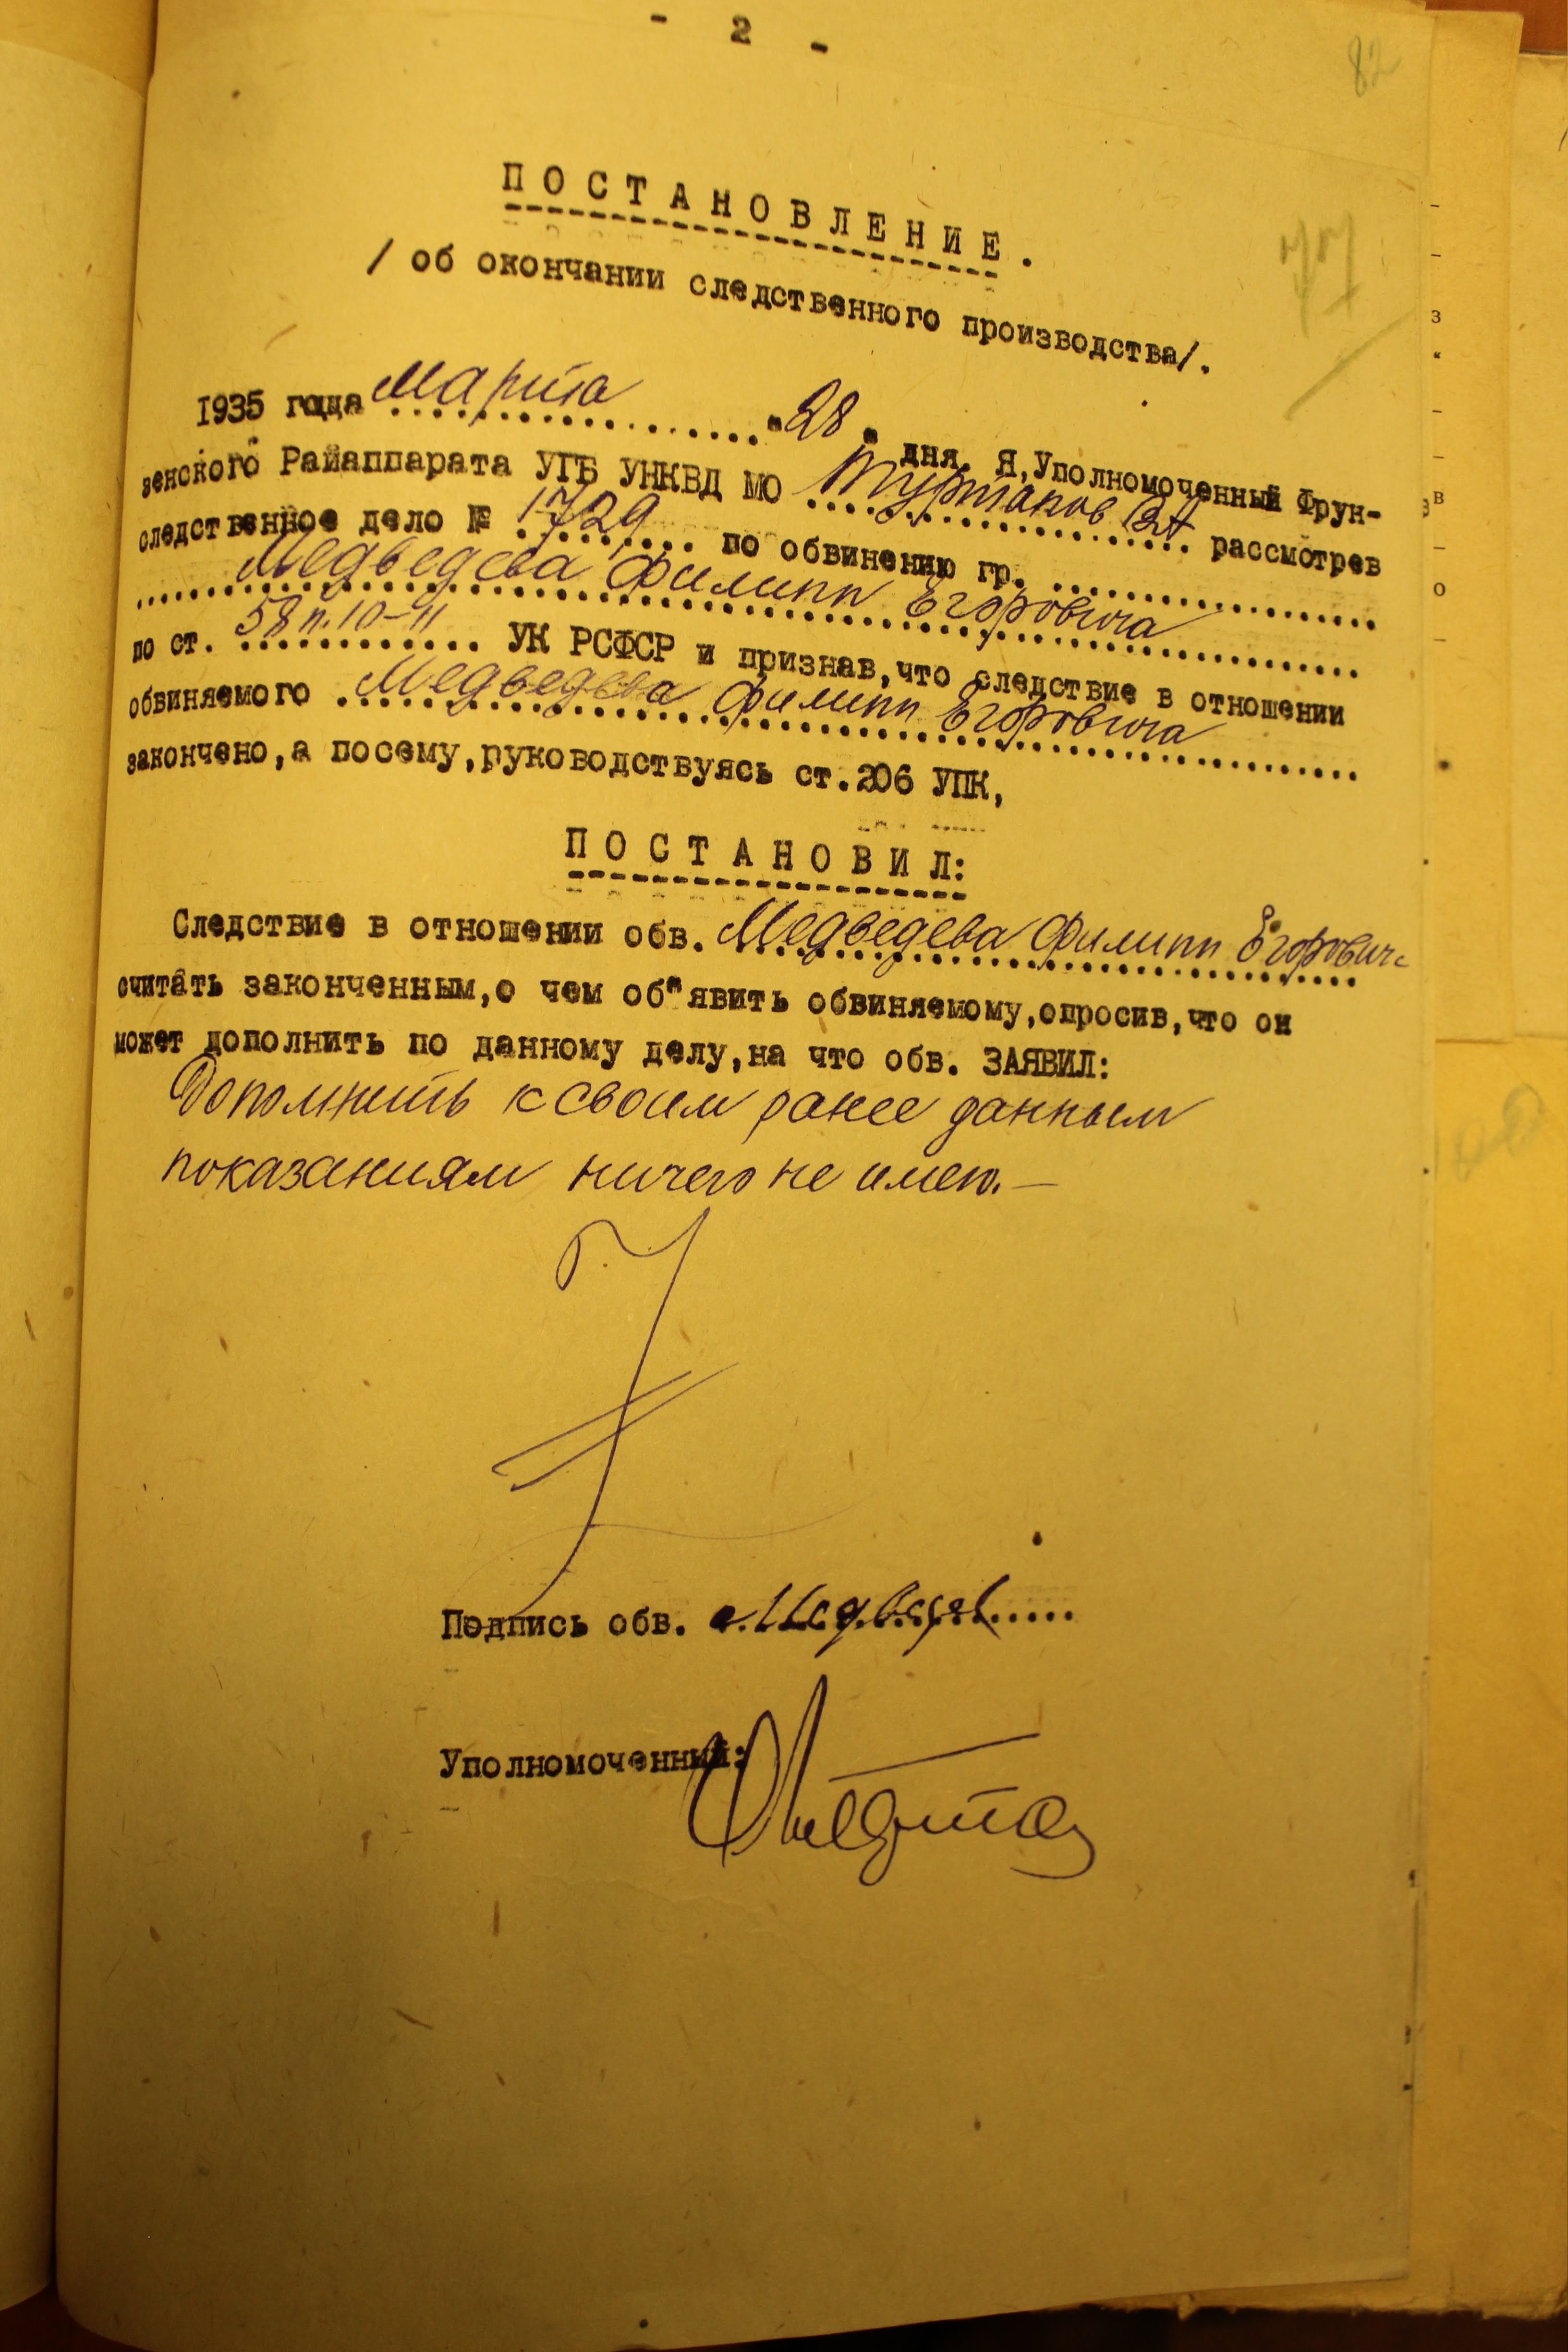 - 2 -
82
77
ПОСТАНОВЛЕНИЕ.
/ об окончании следственного производства/.
1935 года Марта "28" дня. Я, Уполномоченный Фрун-
зенского Райаппарата УГБ УНКВД МО рассмотрев
следственное дело № 1729 по обвинению гр.
Медведева Филипп Егоровича
по ст. 58 п. 10-11 УК РСФСР и признав, что следствие в отношении
обвиняемого Медведева Филипп Егоровича
закончено, а посему, руководствуясь ст. 206 УПК,
ПОСТАНОВИЛ:
Следствие в отношении обв. Медведева Филипп Егорович
считать законченным, о чем об"явить обвиняемому, опросив, что он
может дополнить по данному делу, на что обв. ЗАЯВИЛ:
Дополнить к своим ранее данным
показаниям ничего не имею. —
Подпись обв.
Уполномоченный: